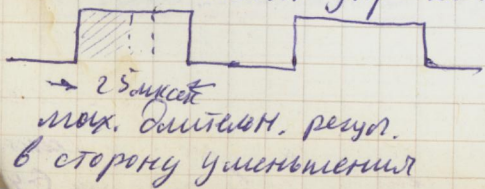 → 25 мксек
мах. длительн. регул.
в сторону уменьшения